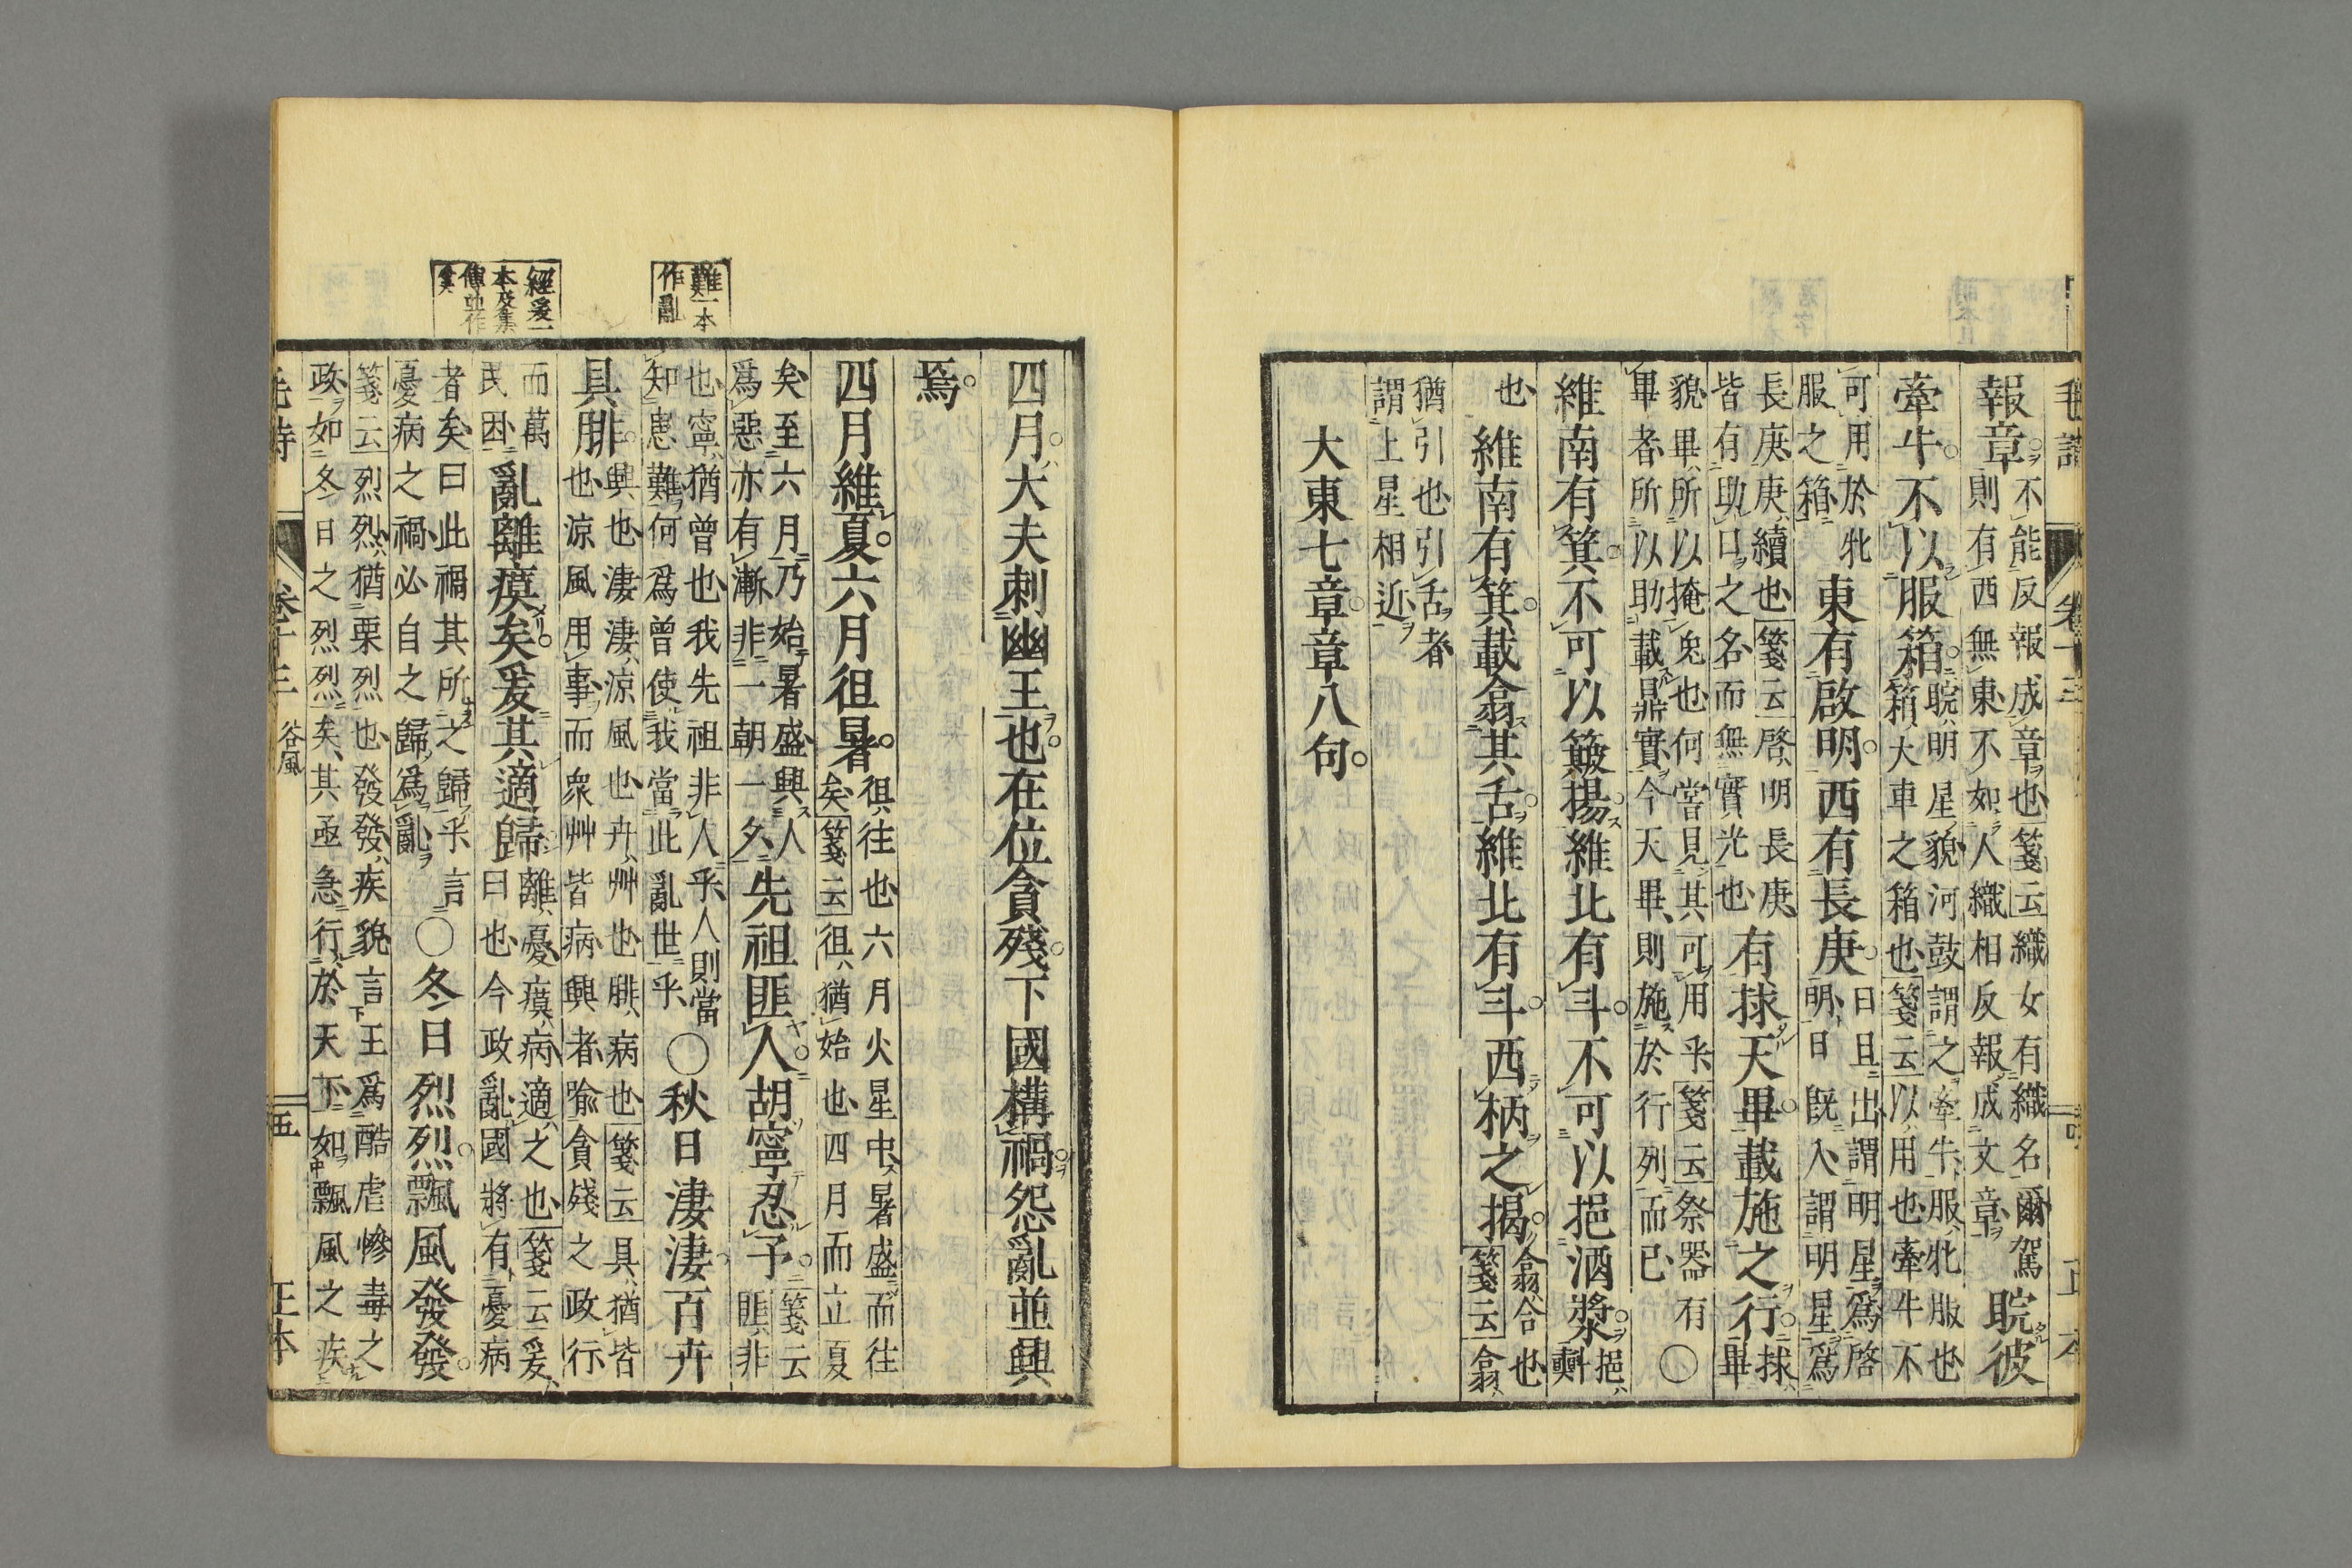 毛詩
卷十三
正本
報章
不能反報成章也箋云織女有織名爾駕
則有西無東不如人織相反報成文章
睆彼
牽牛不以服箱
睆明星貌河鼓謂之牽牛服牝服也
箱大車之箱也箋云以用也牽牛不
可用於牝
服之箱
東有啟明西有長庚
日旦出謂明星爲啓
明日旣入謂明星爲
長庚庚續也箋云啓明長庚
皆有助日之名而無實光也
有捄天畢載施之行
捄
畢
貌畢所以掩兔也何嘗見其可用乎箋云祭器有
畢者所以助載鼎實今天畢則施於行列而已
○
維南有箕不可以簸揚維北有斗不可以挹酒漿
挹
㪺
也
維南有箕載翕其舌維北有斗西柄之揭
翕合也
箋云翕
猶引也引舌者
謂上星相近
大東七章章八句
難一本
作亂
經爰一
本及集
傳並作
奚
四月大夫刺幽王也在位貪殘下國構禍怨亂並興
焉
四月維夏六月徂暑
徂往也六月火星中暑盛而往
矣箋云徂猶始也四月而立夏
矣至六月乃始暑盛興人
爲惡亦有漸非一朝一夕
先祖匪人胡寧忍予
箋云
匪非
也寧猶曾也我先祖非人乎人則當
知患難何爲曾使我當此亂世乎
○秋日淒淒百卉
具腓
興也淒淒涼風也卉艸也腓病也箋云具猶皆
也涼風用事而衆艸皆病興者喻貪殘之政行
而萬
民困
亂離瘼矣爰其適歸
離憂瘼病適之也箋云爰
曰也今政亂國將有憂病
者矣曰此禍其所之歸乎言
憂病之禍必自之歸爲亂
○冬日烈烈飄風發發
箋云烈烈猶栗烈也發發疾貌言王爲酷虐慘毒之
政如冬日之烈烈矣其亟急行於天下如飄風之疾
毛詩
卷十三
谷風
五
正本